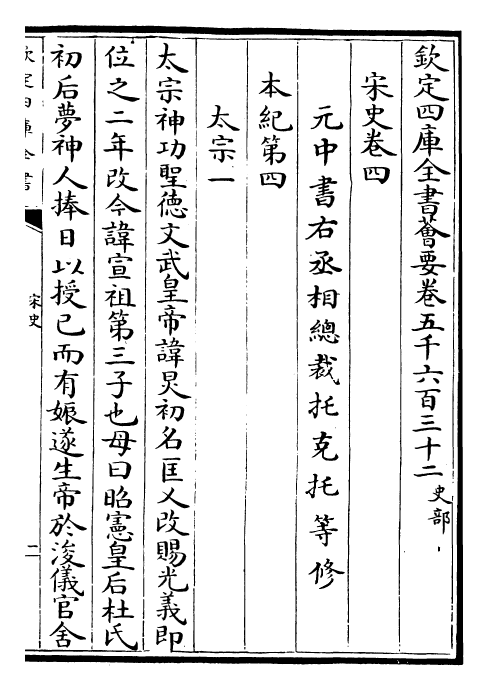 欽定四庫全書薈要卷五千六百三十二 史部
宋史卷四
元中書右丞相總裁托克托等修
本紀第四
太宗一
太宗神功聖德文武皇帝諱炅初名匡乂改賜光義即
位之二年改今諱宣祖第三子也母曰昭憲皇后杜氏
初后夢神人捧日以授已而有娠遂生帝於浚儀官舍
欽定四庫全書
宋史